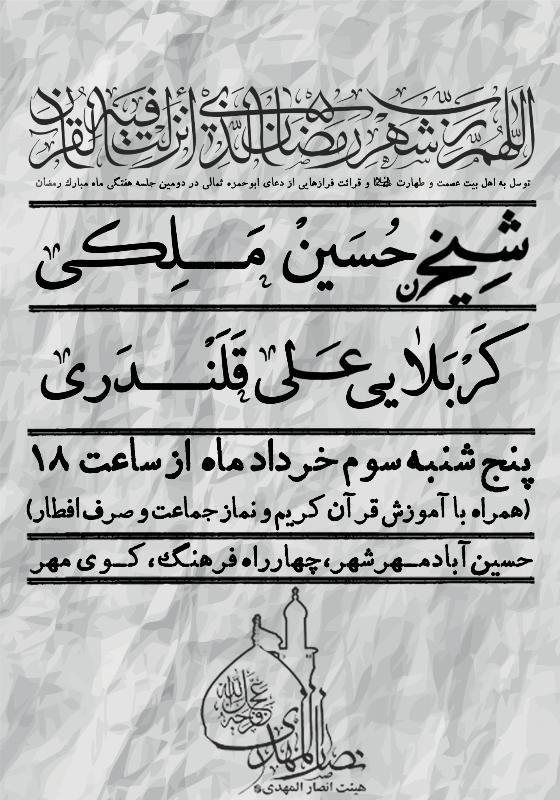 اللهم رب شهر رمضان الذي أنزلت فيه القرآن
توسل به اهل بیت عصمت و طهارت و قرائت فرازهایی از دعای ابوحمزه ثمالی در دومین جلسه هفتگی ماه مبارک رمضان
شیخ حُسَین مَلِکی
کَربَلایی عَلی قَلَندَری
پنج شنبه سوم خرداد ماه از ساعت ۱۸
(همراه با آموزش قرآن کریم و نماز جماعت و صرف افطار)
حسین آباد مهرشهر، چهارراه فرهنگ، کوی مهر
عجل الله فرجه
انصار المهدی
هیئت انصار المهدی